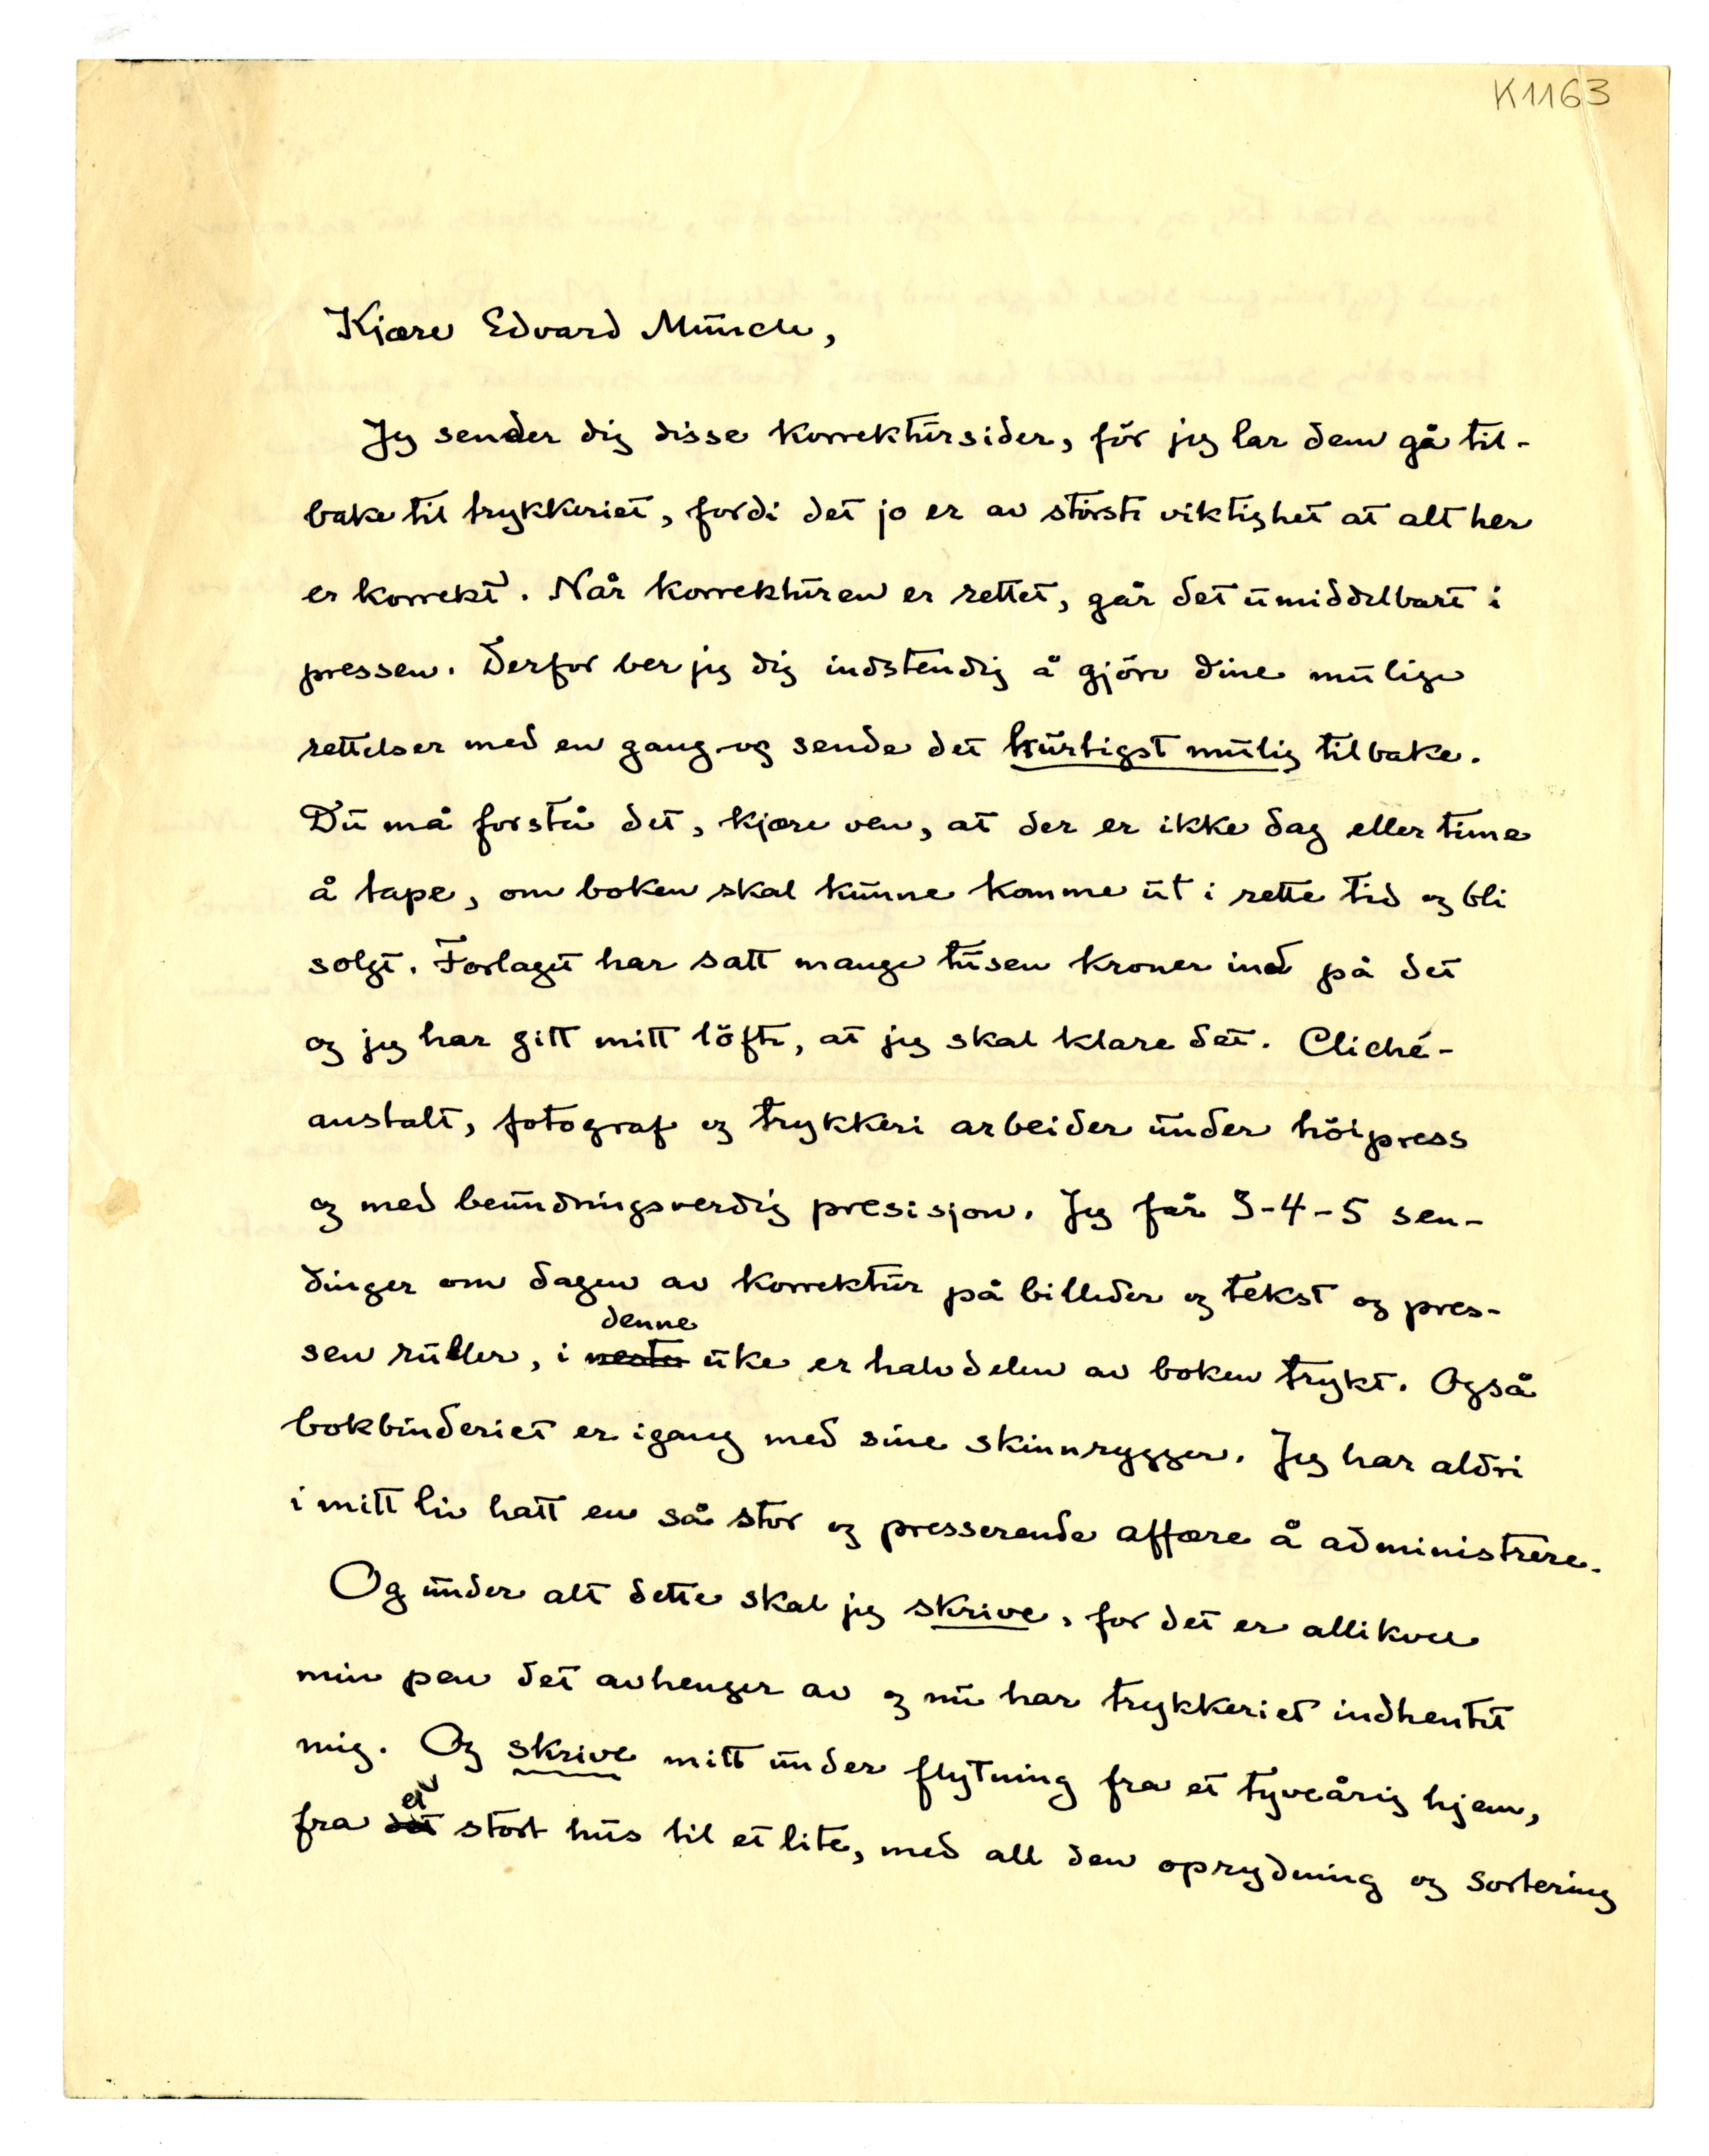 K1163
Kjære Edvard Munch,
Jeg sender dig disse korrektursider, för jeg lar dem gå til-
bake til trykkeriet, fordi det jo er av störste viktighet at alt her
er korrekt. Når korrekturen er rettet, går det umiddelbart i
pressen. Derfor ber jeg dig indstendig å gjöre dine mulige
rettelser med en gang og sende det hurtigst mulig tilbake.
Du må forstå det, kjære ven, at der er ikke dag eller time
å tape, om boken skal kunne komme ut i rette tid og bli
solgt. Forlaget har satt mange tusen kroner ind på det
og jeg har gitt mitt löfte, at jeg skal klare det. Cliché-
anstalt, fotograf og trykkeri arbeider under höipress
og med beundringsverdig presisjon. Jeg får 3-4-5 sen-
dinger om dagen av korrektur på billeder og tekst og pres-
denne
sen ruller, i neste uke er halvdelen av boken trykt. Også
bokbinderiet er igang med sine skinnrygger. Jeg har aldri
i mitt liv hatt en så stor og presserende affære å administrere.
Og under alt dette skal jeg skrive, for det er allikvel
min pen det avhenger av og nu har trykkeriet indhentet
mig. Og skrive mitt under flytning fra et tyveårig hjem,
et
fra det stort hus til et lite, med all den oprydning og sortering